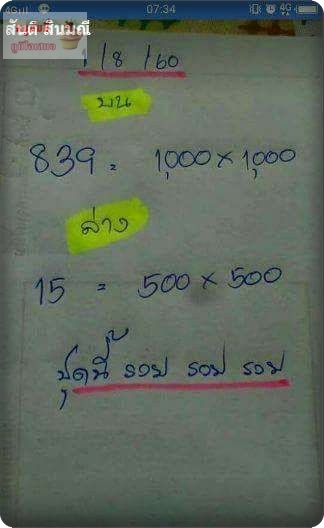 4G 07:34 4G
สันติ สินมณี
คู่มือสมอ
1/8/60
บน
839 = 1,000 x 1,000
ล่าง
15 = 500 x 500
ชุดนี้ รวย รวย รวย